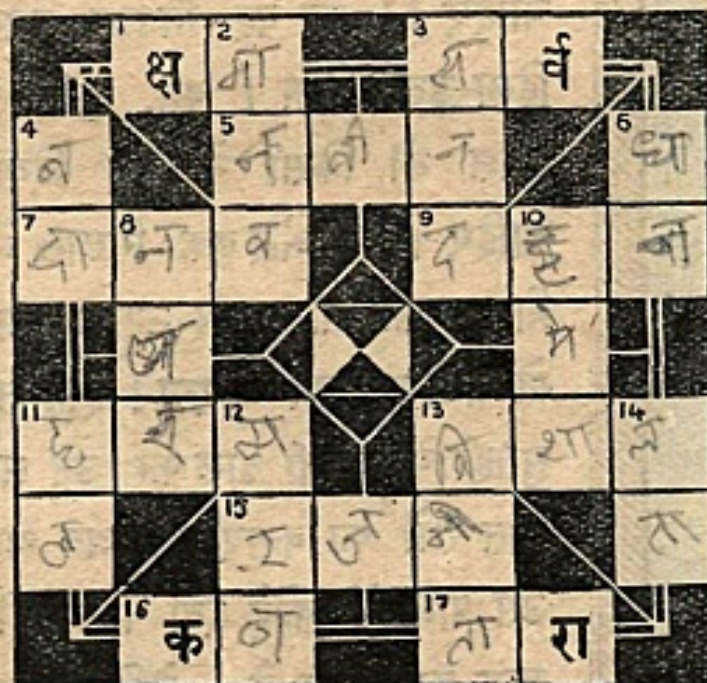 1 क्ष 2 मा 3 स र्व
4 न 5 न वी न 6 धा
7 दा 8 न व 9 द 10 वा
मे
11 12 म 13 वि शा 14
15 र ज नी ता
16 क ण 17 ता रा